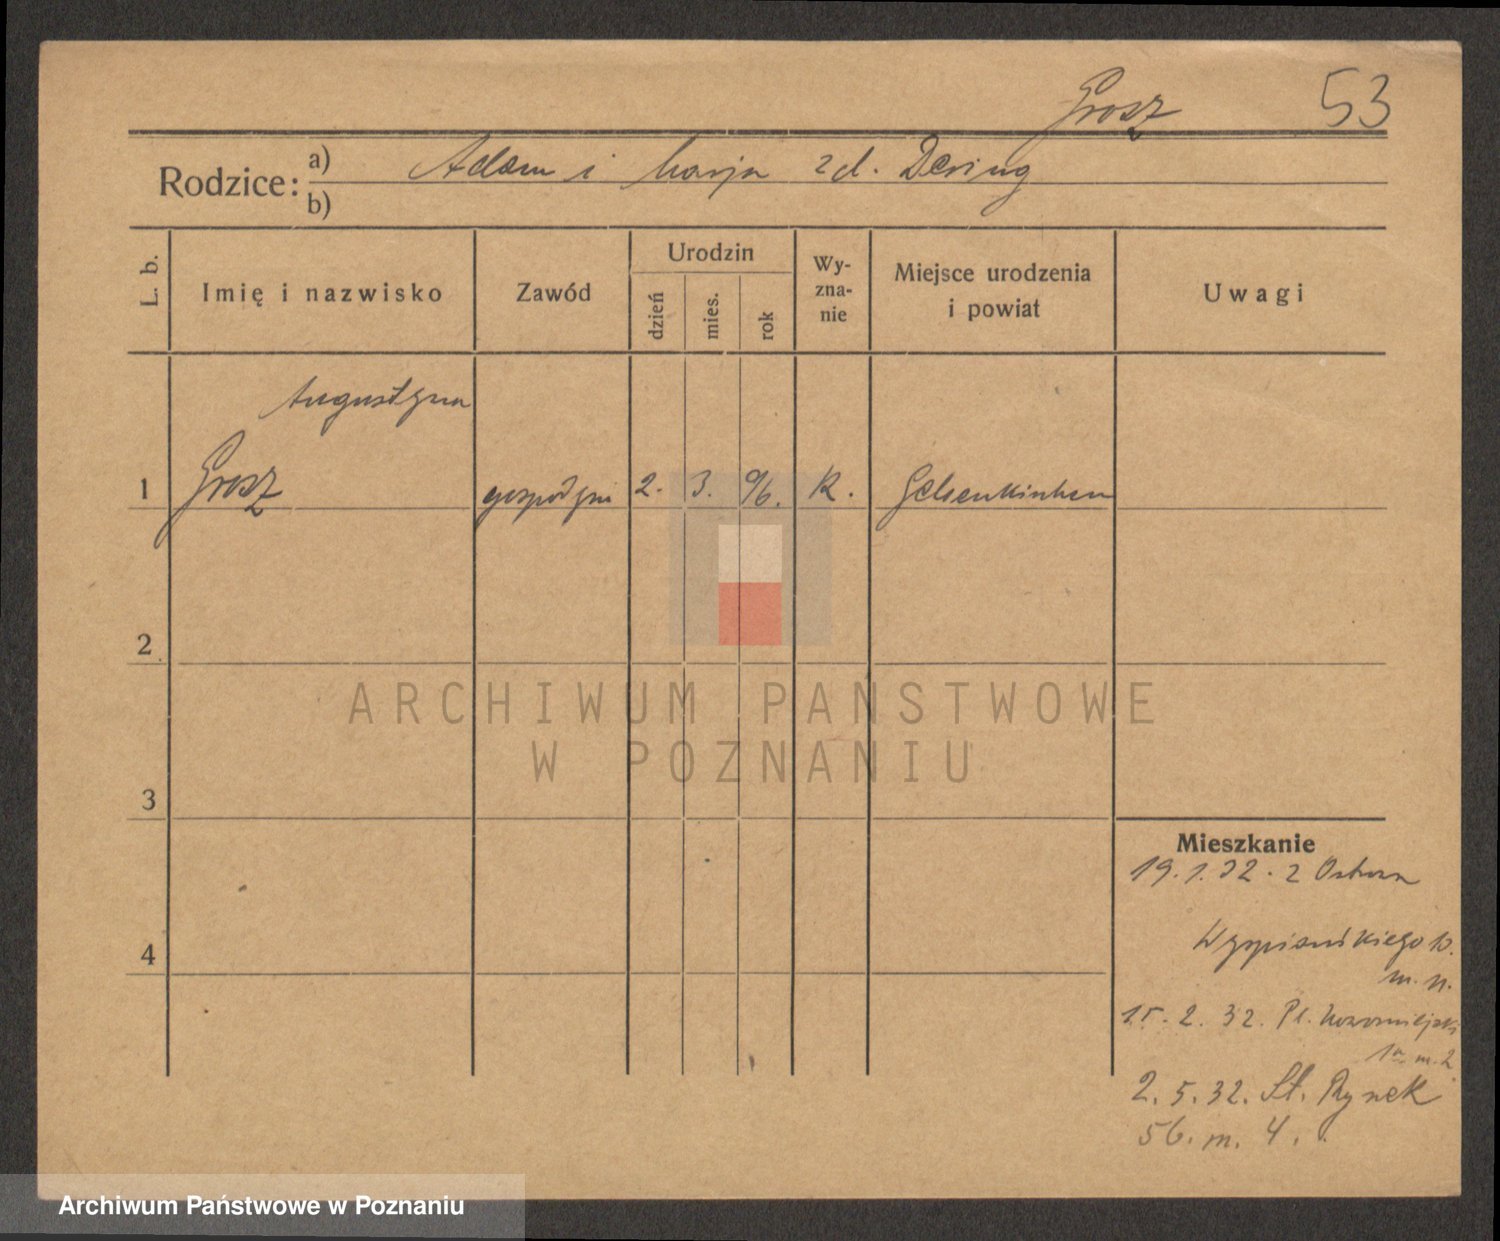 Grosz 53
Rodzice: a) Adam i Marja z d. Dering
b)
L. b. Imię i nazwisko Zawód Urodzin dzień mies. rok Wy-zna-nie Miejsce urodzenia i powiat Uwagi
Augustyna
1 Grosz gospodyni 2. 3. 96. K. Gelsenkirchen
2
ARCHIWUM PAŃSTWOWE
W POZNANIU
3
Mieszkanie
19.1.32. z
4 Wyspiańskiego 10.
m. n.
15. 2. 32. Pl. Nowomiejski
1a m. 2
2. 5. 32. St. Rynek
56. m. 4.
Archiwum Państwowe w Poznaniu